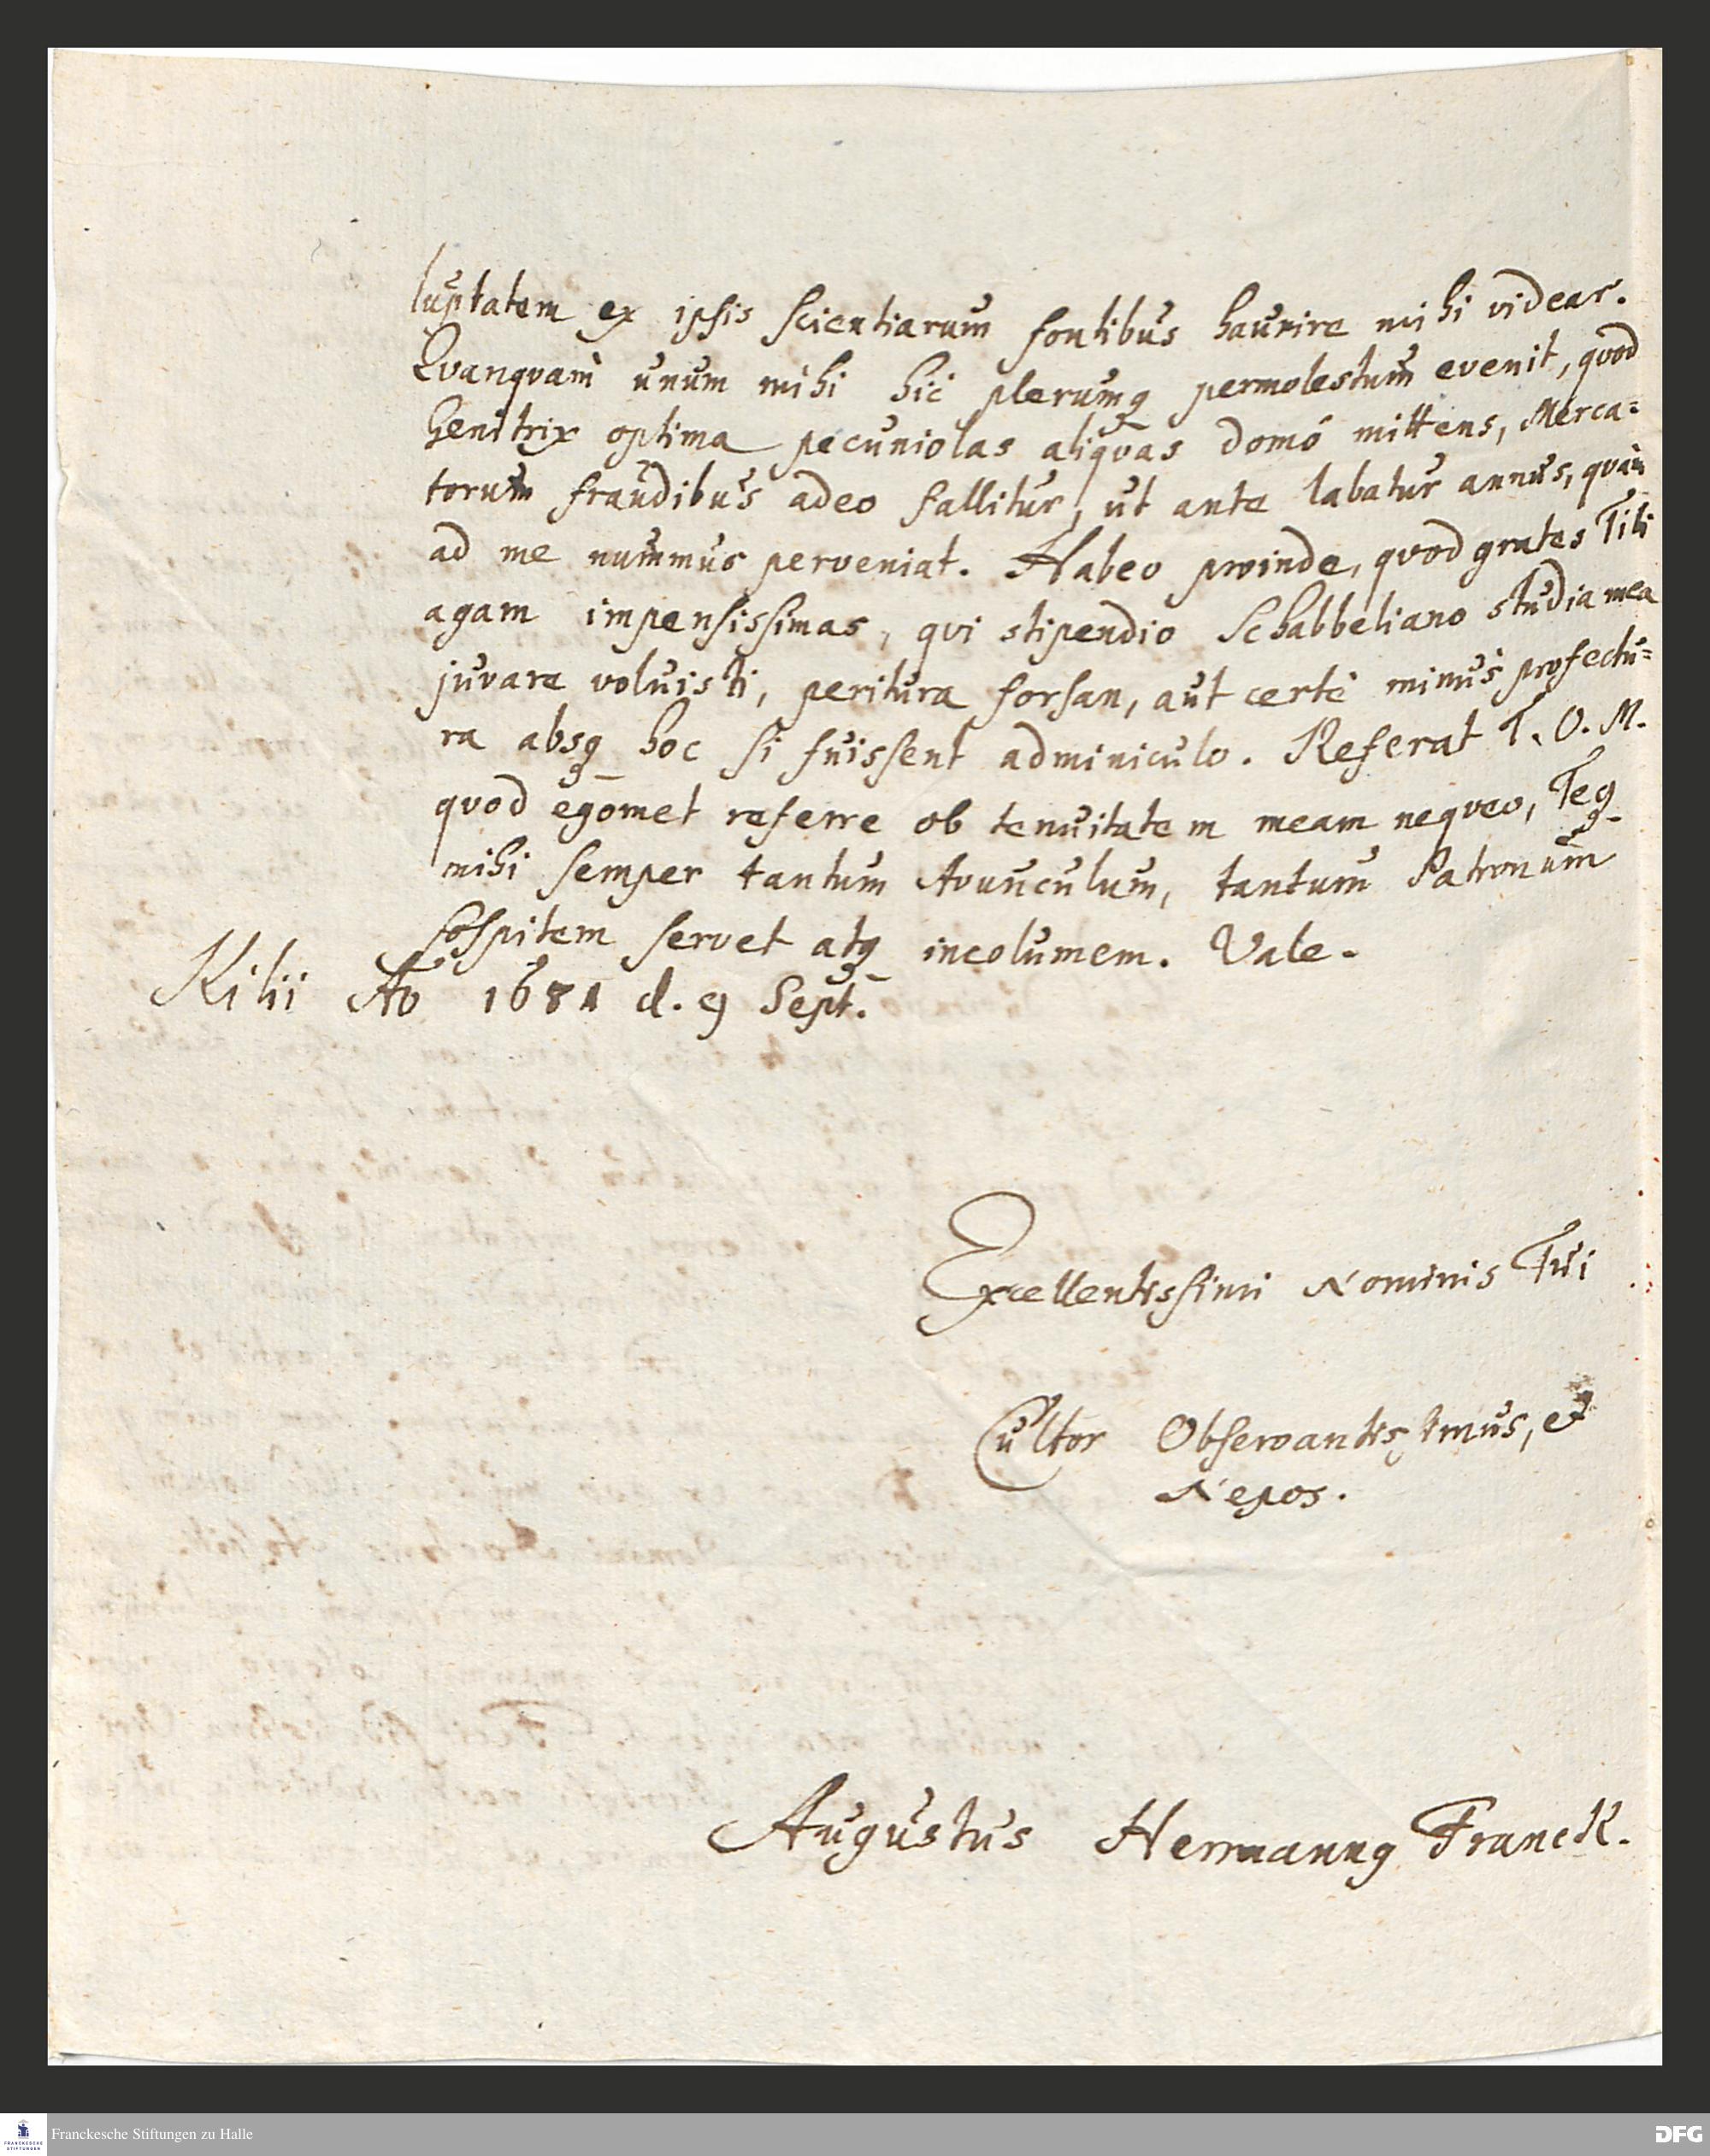 luptatem ex ipsis scientiarum fontibus haurire mihi videar.
Qvanqvam unum mihi hic plerumq permolestum evenit, qvod
Genitrix optima pecuniolas aliqvas domô mittens, Merca=
torum fraudibus adeo fallitur, ut ante labatur annus, qvàm
ad me nummus perveniat. Habeo proinde, qvod grates Tibi
agam impensissimas, qvi stipendio Schabbeliano studia mea
juvare voluisti, peritura forsan, aut certè minus profectu=
ra absq hoc si fuissent adminiculo. Referat T. O. M.
qvod egomet referre ob tenuitatem meam neqveo, Teq
mihi semper tantum Avunculum, tantum Patronum
sospitem servet atq incolumem. Vale.
Kilii Ao 1681 d. 9 Sept.
Excellentissimi Nominis Tui
Cultor Observantissimus, et
Nepos.
Augustus Hermannq Franck.
Franckesche Stiftungen zu Halle
FRANCKESCHE
STIFTUNGEN
DFG